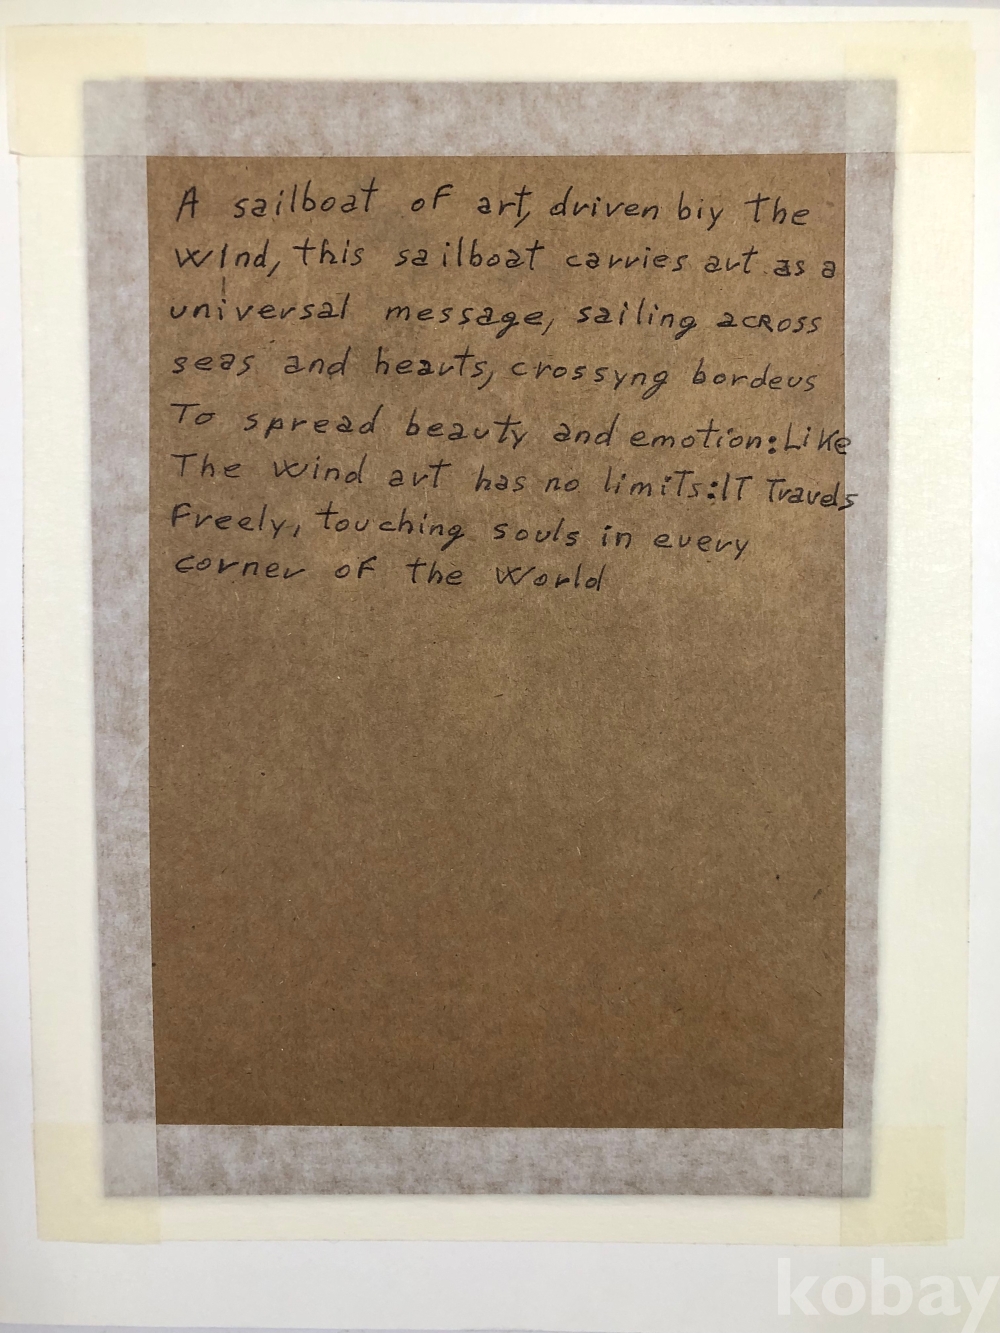 A sailboat of art, driven biy the
wInd, this sailboat carries art as a
universal message, sailing acRoss
seas and hearts, crossyng borders
To spread beauty and emotion:Like
The wind art has no limiTs:IT Travels
Freely, touching souls in every
corner of the world
kobay